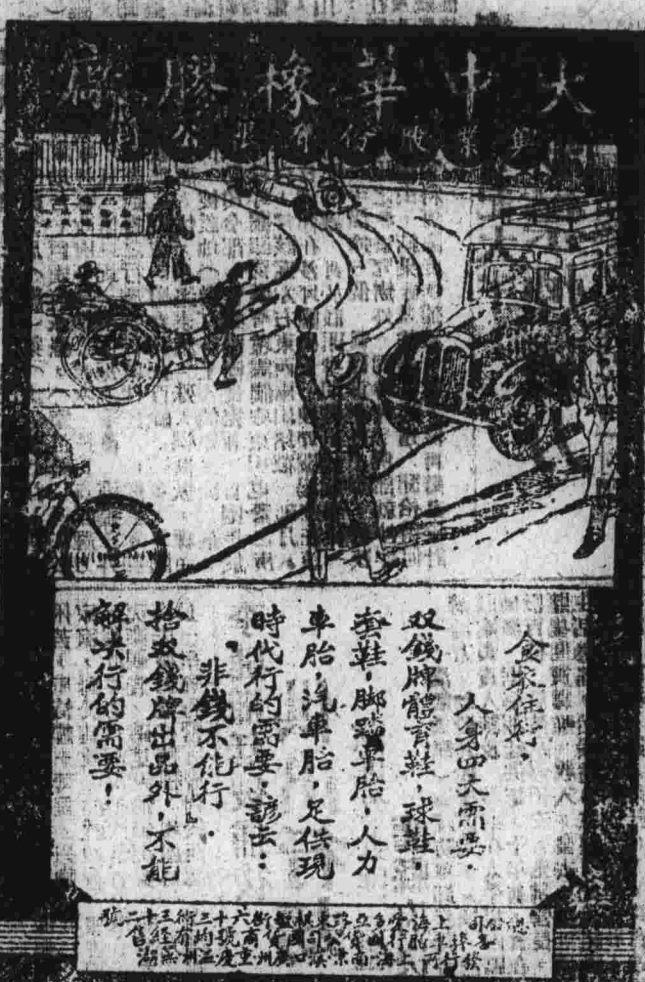 大中華橡膠廠
興業股份有限公司
食衣住行,
人身四大需要。
双錢牌體育鞋,球鞋,
套鞋,脚踏車胎,人力
車胎,汽車胎,足供現
時代行的需要,諺云:
『非錢不能行。』
捨双錢牌出品外,不能
解决行的需要!